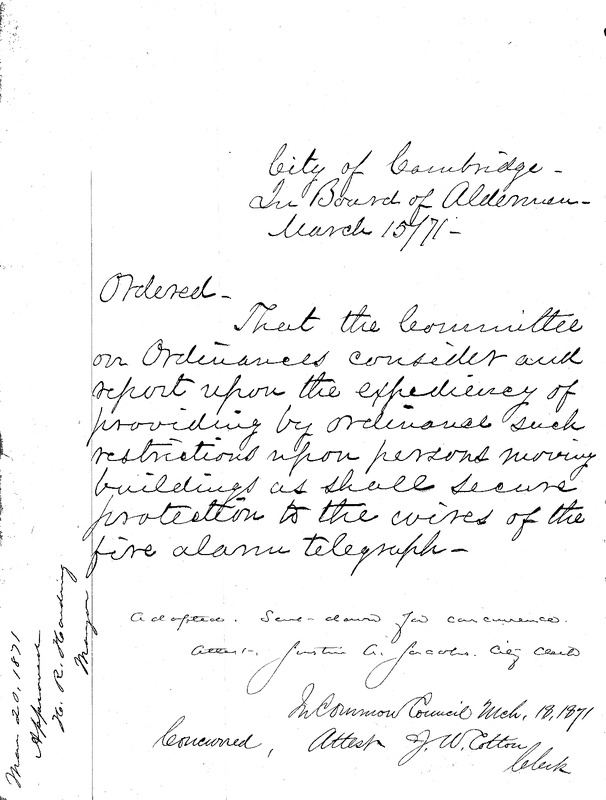 City of Cambridge -
In Board of Aldermen -
March 15/71 -
Ordered -
That the Committee
on Ordinances consider and
report upon the expediency of
providing by ordinance such
restrictions upon persons moving
buildings as shall secure
protection to the wires of the
fire alarm telegraph -
Adopted. Sent down for concurrence.
Attest, Justin A. Jacobs. City Clerk
In Common Council Mch. 18, 1871
Concurred, Attest J. W. Cotton
Clerk
Mar 20, 1871
Approved
H. R. Harding
Mayor